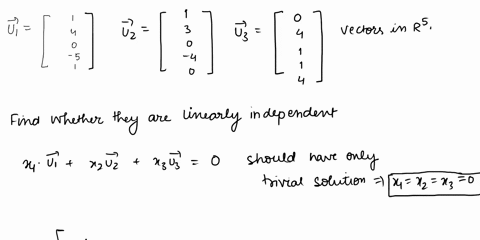 U₁ = [1 4 0 -5 1] U₂ = [1 3 0 -4 0] U₃ = [0 4 1 1 4] vectors in R⁵.
Find whether they are linearly independent
x₁·U₁ + x₂U₂ + x₃U₃ = 0 should have only
trivial solution ⇒ x₁ = x₂ = x₃ = 0